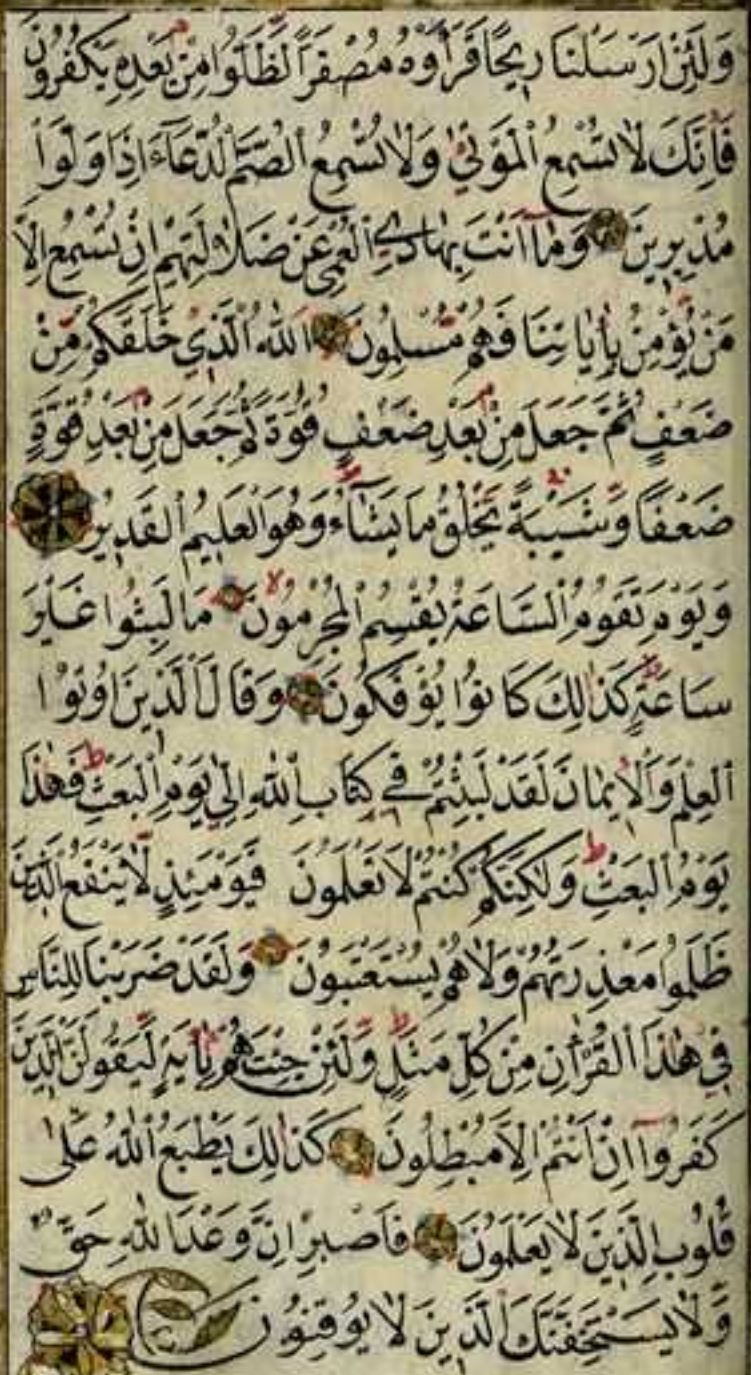 وَلَئِنْ اَرْسَلْنَا رِيحًا فَرَاَوْهُ مُصْفَرًّا لَظَلُّوا مِنْ بَعْدِهِ يَكْفُرُونَ
فَاِنَّكَ لَا تُسْمِعُ الْمَوْتٰى وَلَا تُسْمِعُ الصُّمَّ الدُّعَاءَ اِذَا وَلَّوْا
مُدْبِرِينَ وَمَا اَنْتَ بِهَادِي الْعُمْيِ عَنْ ضَلَالَتِهِمْ اِنْ تُسْمِعُ اِلَّا
مَنْ يُؤْمِنُ بِاٰيَاتِنَا فَهُمْ مُسْلِمُونَ اَللّٰهُ الَّذِي خَلَقَكُمْ مِنْ
ضَعْفٍ ثُمَّ جَعَلَ مِنْ بَعْدِ ضَعْفٍ قُوَّةً ثُمَّ جَعَلَ مِنْ بَعْدِ قُوَّةٍ
ضَعْفًا وَشَيْبَةً يَخْلُقُ مَا يَشَاءُ وَهُوَ الْعَلِيمُ الْقَدِيرُ
وَيَوْمَ تَقُومُ السَّاعَةُ يُقْسِمُ الْمُجْرِمُونَ مَا لَبِثُوا غَيْرَ
سَاعَةٍ كَذٰلِكَ كَانُوا يُؤْفَكُونَ وَقَالَ الَّذِينَ اُوتُوا
الْعِلْمَ وَالْاِيمَانَ لَقَدْ لَبِثْتُمْ فِي كِتَابِ اللّٰهِ اِلٰى يَوْمِ الْبَعْثِ فَهٰذَا
يَوْمُ الْبَعْثِ وَلٰكِنَّكُمْ كُنْتُمْ لَا تَعْلَمُونَ فَيَوْمَئِذٍ لَا يَنْفَعُ الَّذِينَ
ظَلَمُوا مَعْذِرَتُهُمْ وَلَا هُمْ يُسْتَعْتَبُونَ وَلَقَدْ ضَرَبْنَا لِلنَّاسِ
فِي هٰذَا الْقُرْاٰنِ مِنْ كُلِّ مَثَلٍ وَلَئِنْ جِئْتَهُمْ بِاٰيَةٍ لَيَقُولَنَّ الَّذِينَ
كَفَرُوا اِنْ اَنْتُمْ اِلَّا مُبْطِلُونَ كَذٰلِكَ يَطْبَعُ اللّٰهُ عَلٰى
قُلُوبِ الَّذِينَ لَا يَعْلَمُونَ فَاصْبِرْ اِنَّ وَعْدَ اللّٰهِ حَقٌّ
وَلَا يَسْتَخِفَّنَّكَ الَّذِينَ لَا يُوقِنُونَ